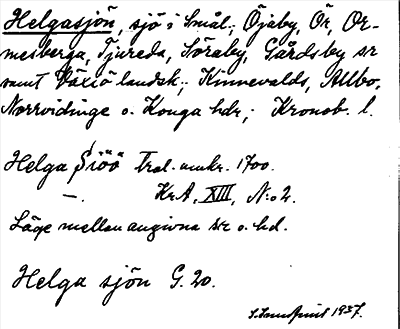 Helgasjön, sjö i Smål.; Öjaby, Ör, Or-
mesberga, Tjureda, Söraby, Gårdsby sr
samt Växiö landsk.; Kinnevalds, Allbo,
Norrvidinge o. Konga hdr; Kronob. l.
Helga Siöö Trol. omkr. 1700.
—. KrA, XIII, N:o 2.
Läge mellan angivna sr o. hd.
Helga sjön G. 20.
1937.